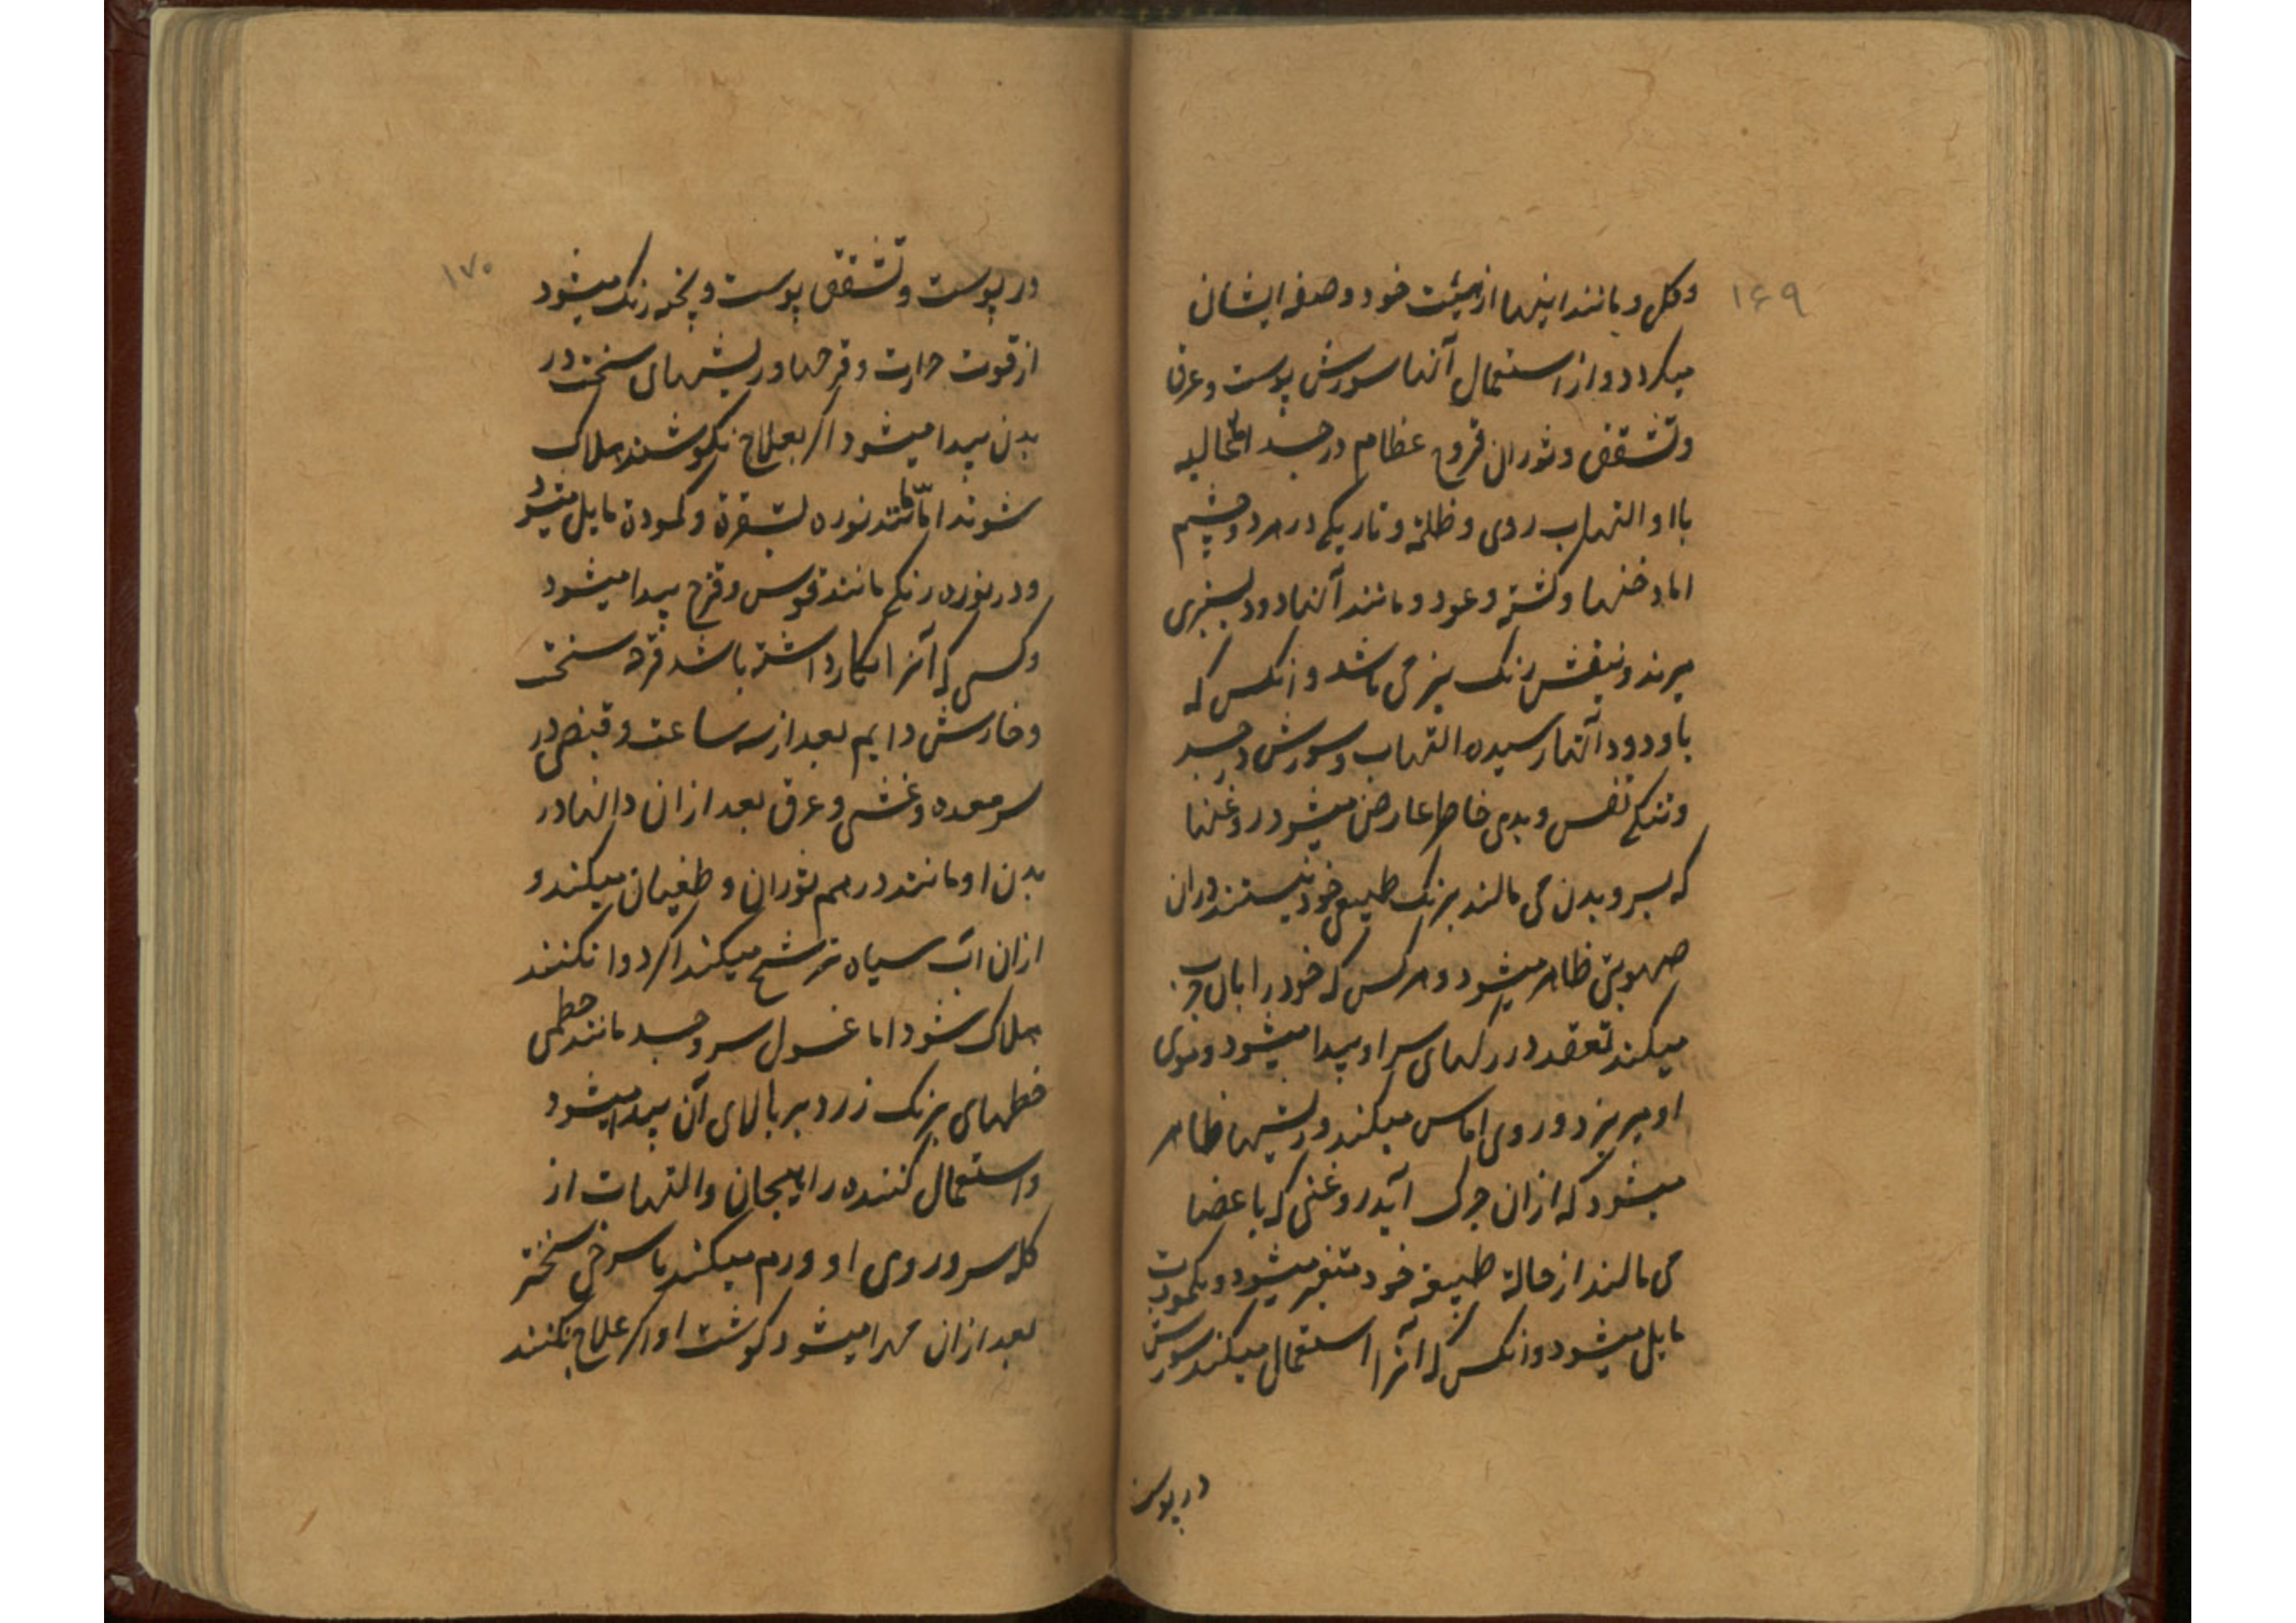 ۱۶۹
وکل و مانند اینها از هیئت خود و صفه ایشان
میکردد و از استعمال آنها سورش پوست و عرق
وتشقق و ثوران قروح عظام در جسد
با او التهاب روی و ظلمة و تاریکی در هر دو چشم
اما دخنها و کشته و عود و مانند آنها دود بسبزی
میزند و بنفش رنک نیز می باشد و انکس که
با و دود آنها رسیده التهاب و سورش در جسد
و تنکی نفس و بدی خاطر عارض میشود روغنها
که بسر و بدن می مالند برنک طبیعی خود نیستند دران
صهوبتی ظاهر میشود و هر کس که خود را بان چرب
میکند تعقد در رکهای سر او پیدا میشود و موی
او میریزد و روی اماس میکند و ریشها ظاهر
میشود که ازان چرک آید روغنی که باعضا
می مالند از حالة طبیعة خود متغیر میشود و بکمودت
مایل میشود و انکس که آنرا استعمال میکند سورش
در پوست
۱۷۰
در پوست و تشقق پوست و پخته رنک میشود
از قوت حرارت و قرحها و ریشهای سخت در
بدن پیدا میشود اکر بعلاج نکوشند هلاک
شوند اما مانند نوره بشقرة و کمودة مایل میشود
و در نوره رنکی مانند قوس و قزح پیدا میشود
و کسی که آنرا بکار داشته باشد قرحه سخت
و خارش دایم بعد از سه ساعت و قبض در
سر معده و غشی و عرق بعد ازان دانها در
بدن او مانند درهم ثوران و طغیان میکند و
ازان آب سیاه ترشح میکند اکر دوا نکنند
هلاک شود اما غسول سر و جسد مانند خطمی
خطهای برنک زرد بر بالای آن پیدا میشود
و استعمال کننده را هیجان و التهات از
کله سر و روی او ورم میکند با سرخی سختر
بعد ازان مهرا میشود کوشت او اکر علاج نکنند